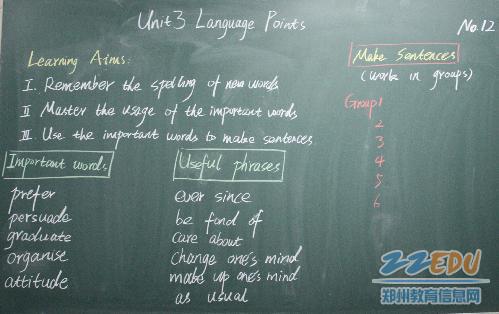 Unit 3 Language Points
No.12
Learning Aims:
I. Remember the spelling of new words
II Master the usage of the important words
III. Use the important words to make sentences
Important words
prefer
persuade
graduate
organise
attitude
Useful phrases
ever since
be fond of
care about
change one's mind
make up one's mind
as usual
Make Sentences
(Work in groups)
Group 1
2
3
4
5
6
ZZEDU
郑州教育信息网